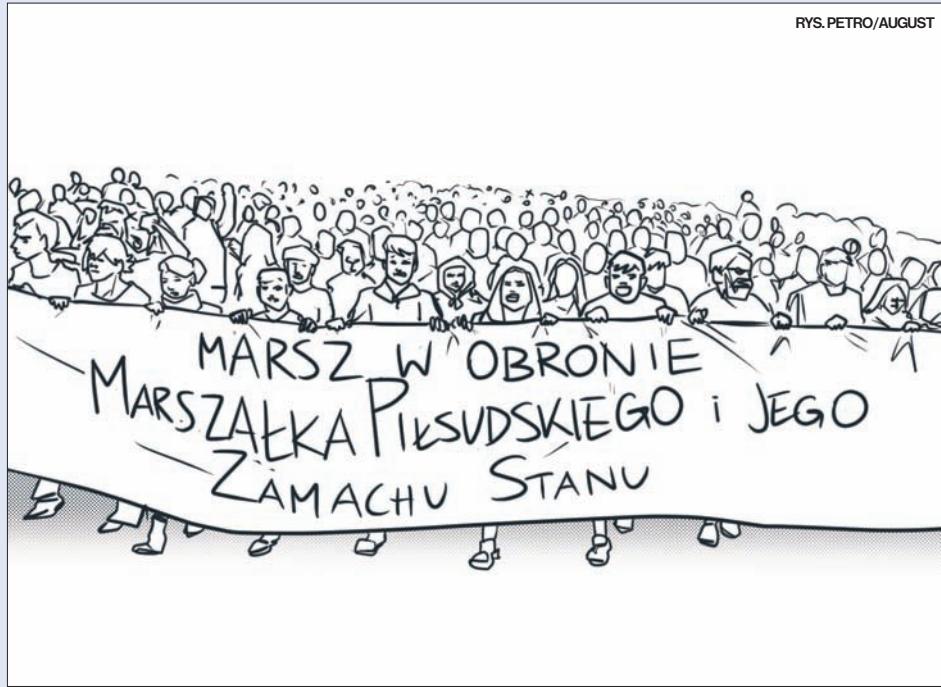 RYS. PETRO/AUGUST
MARSZ W OBRONIE
MARSZAŁKA PIŁSUDSKIEGO i JEGO
ZAMACHU STANU